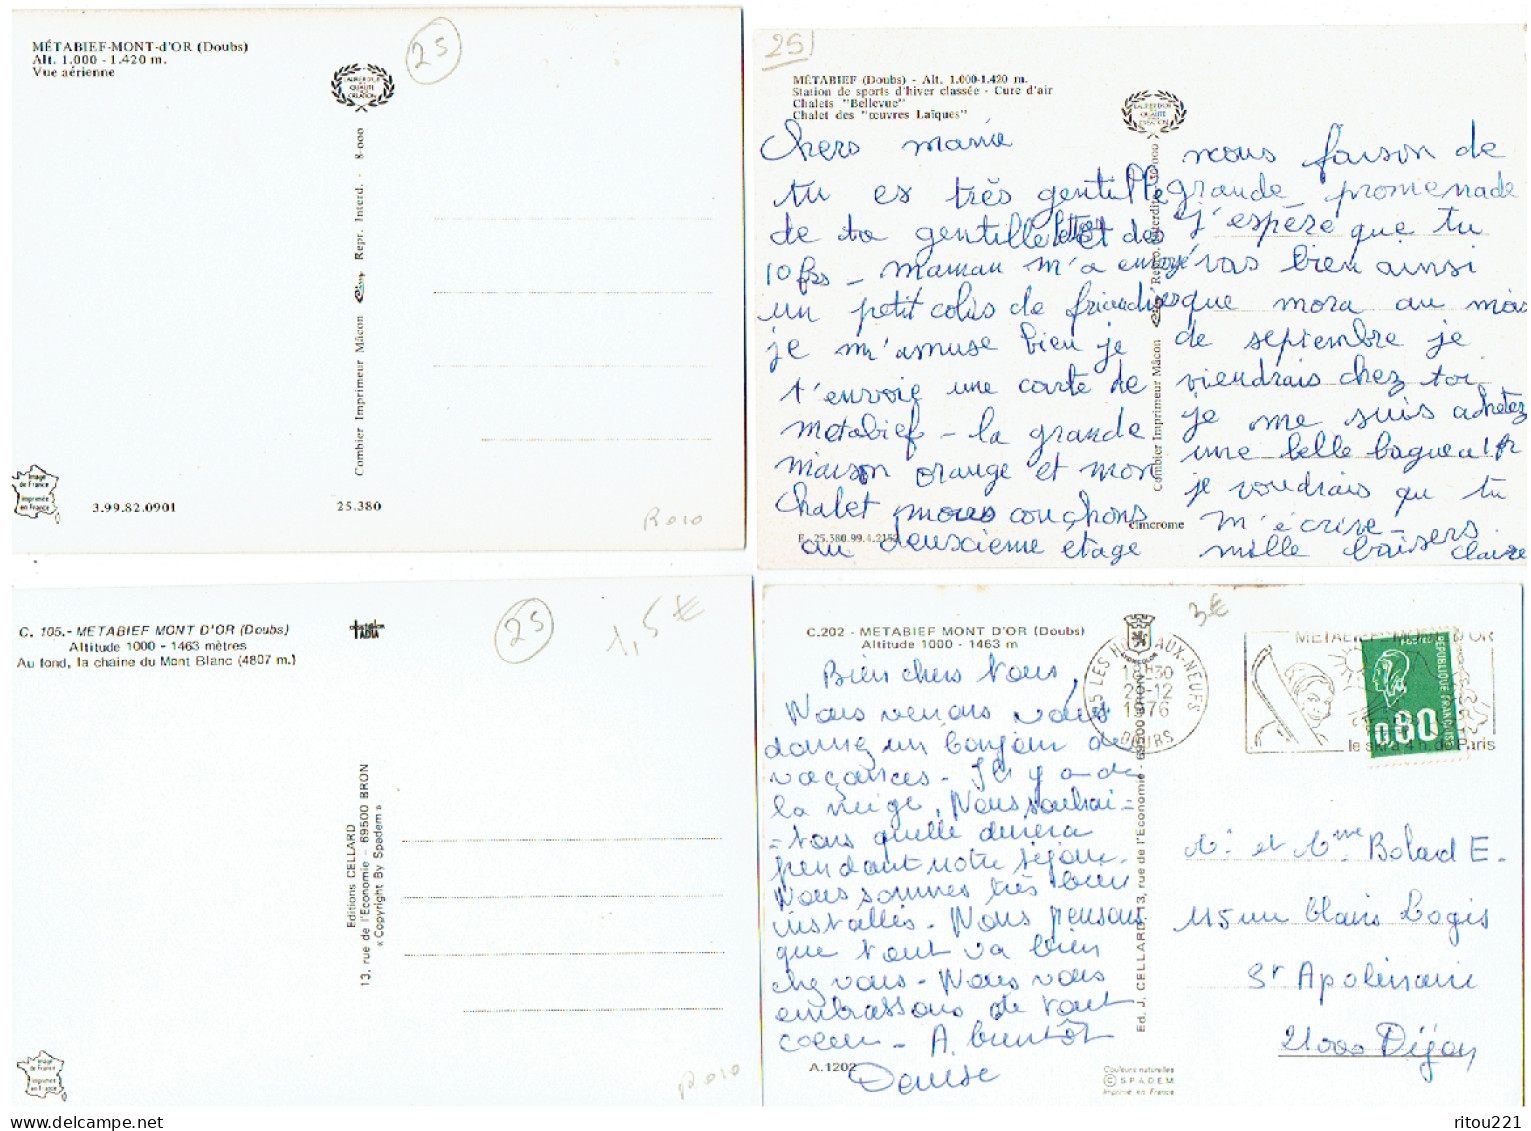 MÉTABIEF-MONT-d'OR (Doubs)
Alt. 1.000 - 1.420 m.
Vue aérienne
25
LAURIER D'OR
DE LA
QUALITÉ
CRÉATION
Combier Imprimeur Mâcon Cim Repr. Interd. - 8-000
Image
de France
Imprimée
en France
3.99.82.0901
25.380
Roro
25
MÉTABIEF (Doubs) - Alt. 1.000-1.420 m.
Station de sports d'hiver classée - Cure d'air
Chalets "Bellevue"
Chalet des "œuvres Laïques"
LAURIER D'OR
DE LA
QUALITÉ
CRÉATION
Combier Imprimeur Mâcon Cim Repro. interdite 30 000
chers mamie
tu es très gentille
de ta gentille lettre et des
10 frs - maman m'a envoyé
un petit colis de friandises
je m'amuse bien je
t'envoie une carte de
metabief - la grande
maison orange et mon
chalet nous couchons
au deuxième étage
nous faison de
grande promenade
j'espère que tu
vas bien ainsi
que mora au mois
de septembre je
viendrais chez toi
je me suis achetez
une belle bague a 1 fr
je voudrais que tu
m'écrive -
mille baisers
claire
cimcrome
E. 25.380.99.4.2152
C. 105.- METABIEF MONT D'OR (Doubs)
Altitude 1000 - 1463 mètres
Au fond, la chaine du Mont Blanc (4807 m.)
25
1,5€
Editions CELLARD
13, rue de l'Economie - 69500 BRON
« Copyright By Spadem »
Image
de France
Imprimée
en France
Roro
C.202 - METABIEF MONT D'OR (Doubs)
Altitude 1000 - 1463 m
3€
25 LES HOPITAUX-NEUFS
18H30
1976
DOUBS
METABIEF - MONT D'OR
le ski à 4 h. de Paris
POSTES
REPUBLIQUE FRANÇAISE
0,80
Bien chers tous,
Nous venons vous
donnez un bonjour de
vacances - Il y a de
la neige, Nous souhai=
=tons quelle durera
pendant notre séjour.
Nous sommes très bien
installés - Nous pensons
que tout va bien
chez vous - Nous vous
embrassons de tout
coeur - A bientôt
Denise
Ed. J. CELLARD, 13, rue de l'Economie - 69500 BRON
Mr et Mme Bolard E.
115 rue Clairs Logis
St Apolinaire
21000 Dijon
A.1202
Couleurs naturelles
© SPADEM
Imprimé en France
ritou221